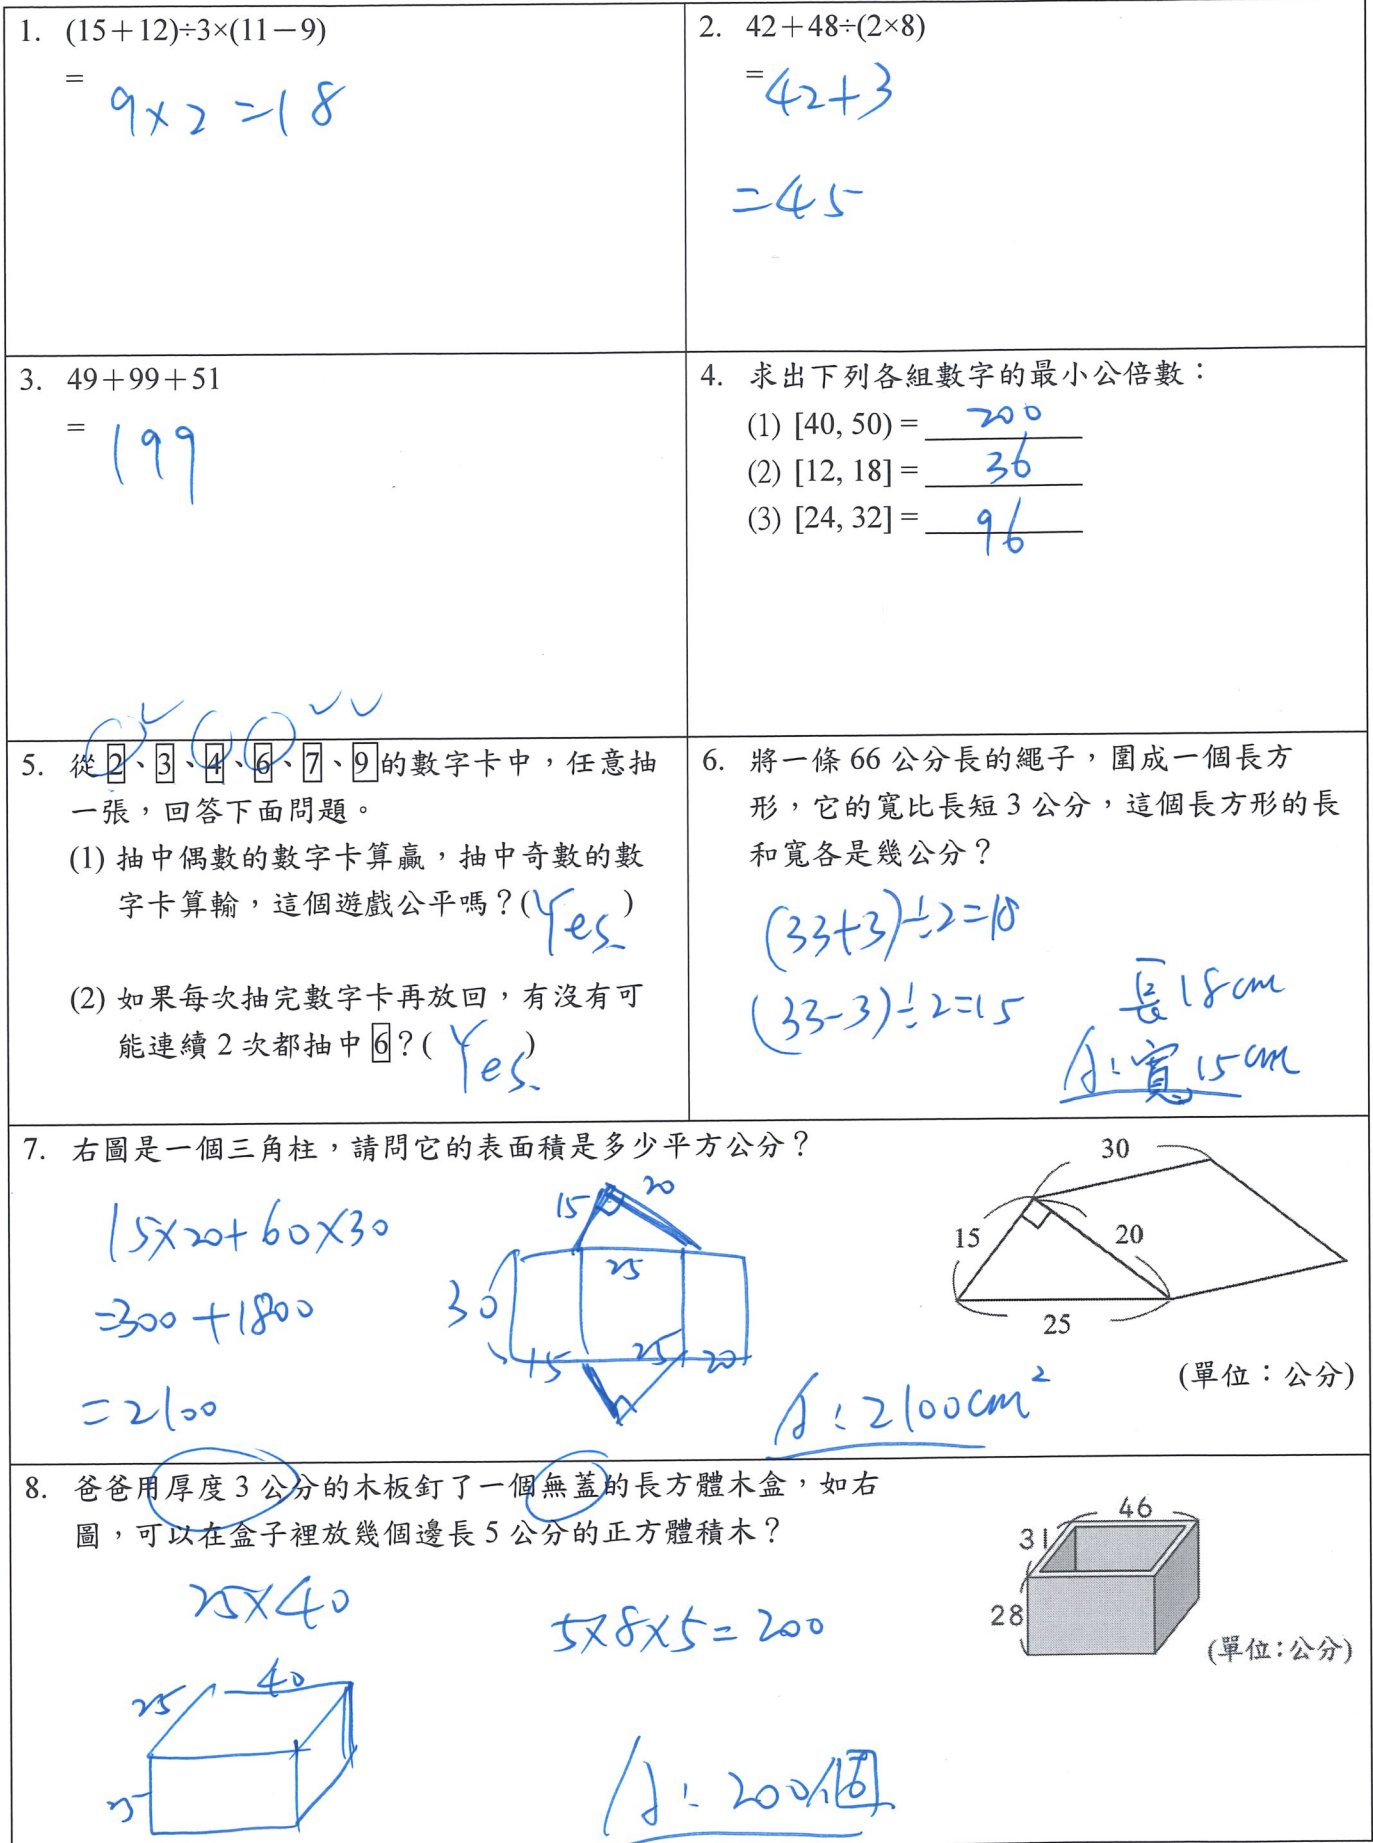 1. (15+12)÷3×(11-9)
=
9×2=18
2. 42+48÷(2×8)
=42+3
=45
3. 49+99+51
= 199
4. 求出下列各組數字的最小公倍數：
(1) [40, 50) = 200
(2) [12, 18] = 36
(3) [24, 32] = 96
5. 從2、3、4、6、7、9的數字卡中，任意抽
一張，回答下面問題。
(1) 抽中偶數的數字卡算贏，抽中奇數的數
字卡算輸，這個遊戲公平嗎？(Yes)
(2) 如果每次抽完數字卡再放回，有沒有可
能連續2次都抽中6？(Yes)
6. 將一條66公分長的繩子，圍成一個長方
形，它的寬比長短3公分，這個長方形的長
和寬各是幾公分？
(33+3)÷2=18
(33-3)÷2=15
長18cm
A:寬15cm
7. 右圖是一個三角柱，請問它的表面積是多少平方公分？
15×20+60×30
=300+1800
=2100
15
20
25
30
15
25
20
A:2100cm²
30
15
20
25
(單位：公分)
8. 爸爸用厚度3公分的木板釘了一個無蓋的長方體木盒，如右
圖，可以在盒子裡放幾個邊長5公分的正方體積木？
25×40
5×8×5=200
25
40
25
A:200個
46
31
28
(單位:公分)